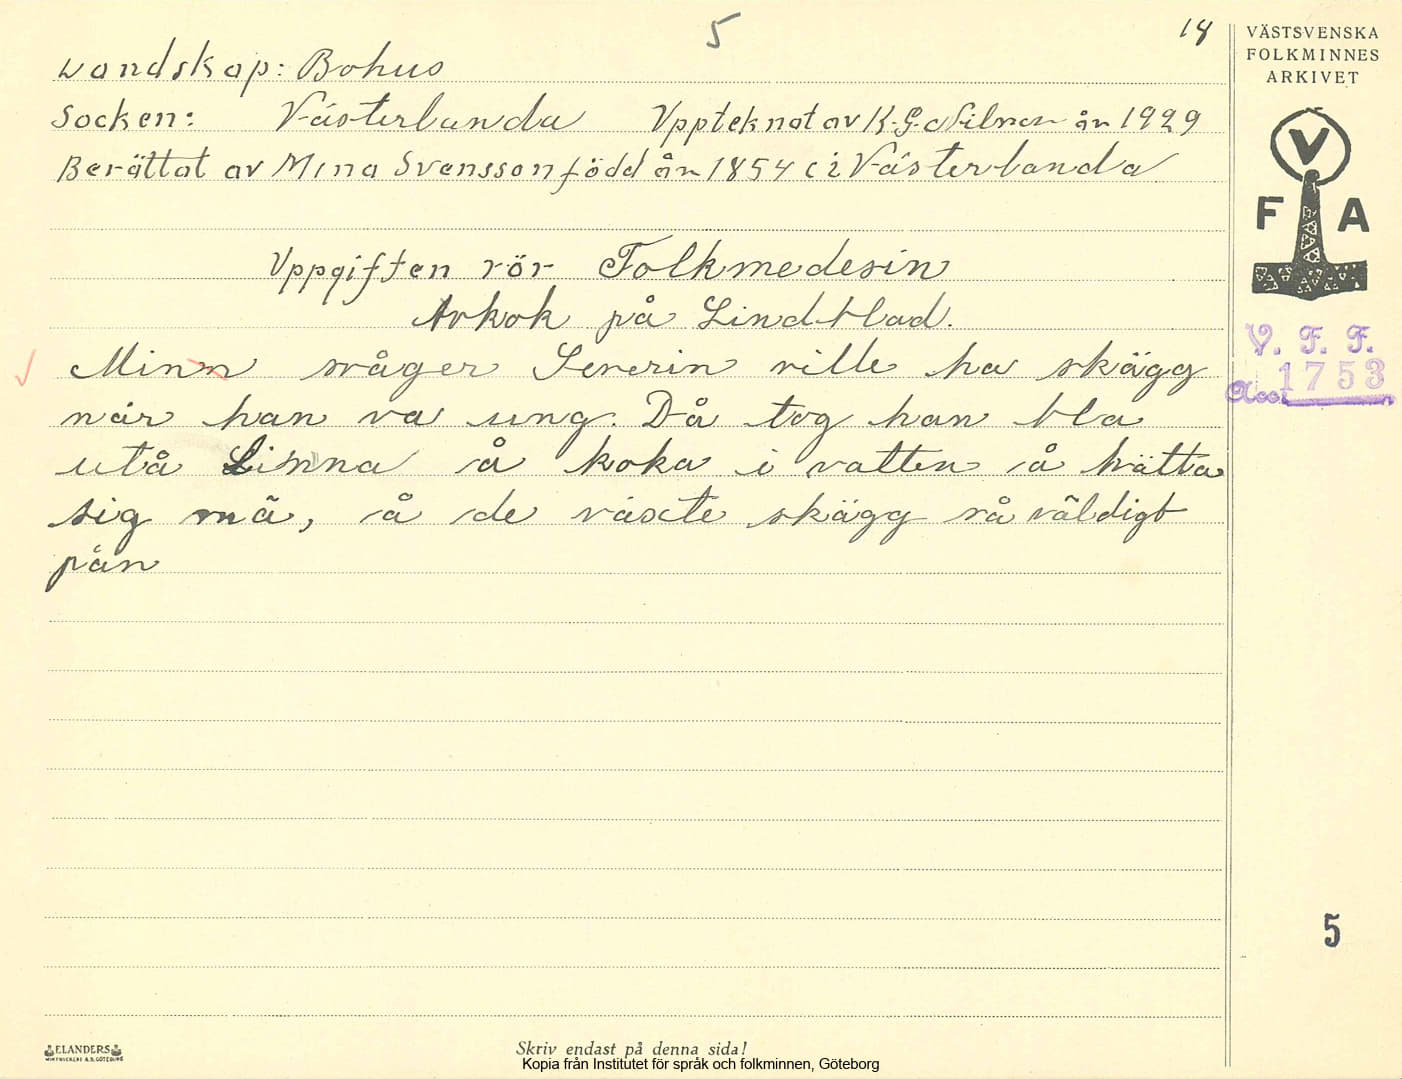 5
18
VÄSTSVENSKA
FOLKMINNES
ARKIVET
Landskap: Bohus
Socken: Västerlanda Uppteknat av K.G. Nilson år 1929
Berättat av Mina Svensson född år 1854 i Västerlanda
V
F A
Uppgiften rör Folkmedesin
Avkok på Lindblad.
V. F. F.
Acc. 1753
Minn svåger Severin ville ha skägg
när han va ung. Då tog han bla
utå Linna å koka i vatten å tvätta
sig mä, å de växte skägg så väldigt
pån
5
ELANDERS
Skriv endast på denna sida!
Kopia från Institutet för språk och folkminnen, Göteborg